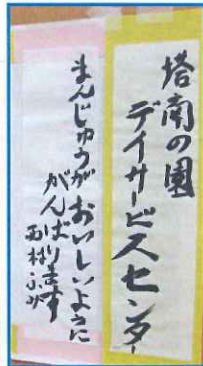 塔南の園
デイサービスセンター
まんじゅうがおいしいように
がんばります
西村ふみ